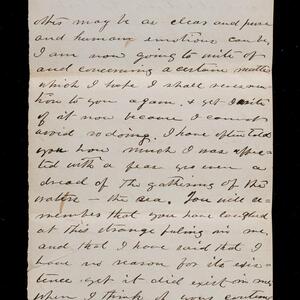 this may be as clear and pure
and human emotions can be,
I am now going to write of
and concerning a certain matter
which I hope I shall never
to you again. & yet I write
of it now because I cannot
avoid so doing. I have often told
you how much I was affec-
ted with a fear yes even a
dread of the gathering of the
waters — the sea. You will re-
member that you have laughed
at this strange feeling in me,
and that I have said that I
have no reason for its exis-
tence yet it did exist in me,
when I think of your